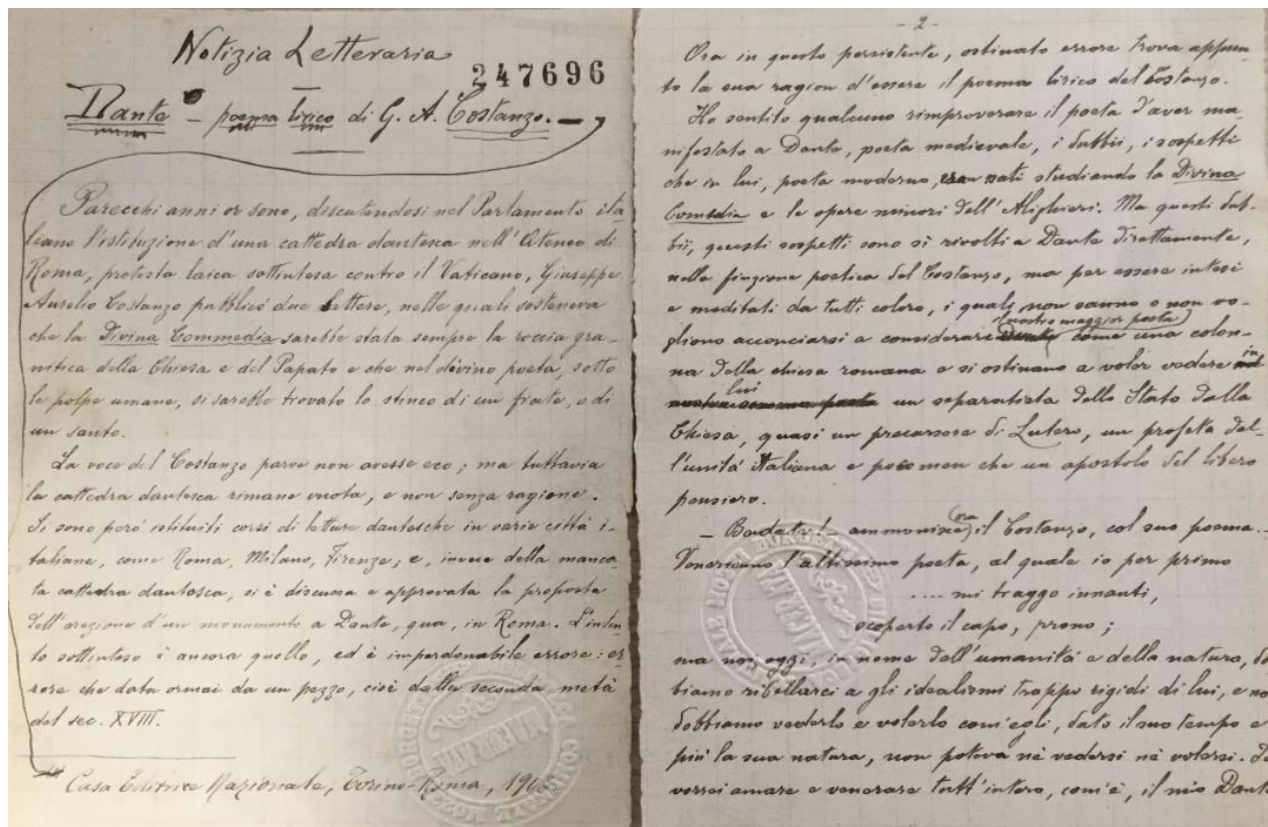 Notizia Letteraria
247696
Dante - poema lirico di G. A. Costanzo. -
Parecchi anni or sono, discutendosi nel Parlamento ita
liano l'istituzione d'una cattedra dantesca nell'Ateneo di
Roma, protesta laica sottintesa contro il Vaticano, Giuseppe
Aurelio Costanzo pubblicò due lettere, nelle quali sosteneva
che la Divina Commedia sarebbe stata sempre la roccia gra-
nitica della Chiesa e del Papato e che nel divino poeta, sotto
le polpe umane, si sarebbe trovato lo stinco di un frate, o di
un santo.
La voce del Costanzo parve non avesse eco; ma tuttavia
la cattedra dantesca rimane vuota, e non senza ragione.
Si sono però istituiti corsi di letture dantesche in varie città i-
taliane, come Roma, Milano, Firenze; e, invece della manca-
ta cattedra dantesca, si è discussa e approvata la proposta
dell'erezione d'un monumento a Dante, qua, in Roma. L'inten
to sottinteso è ancora quello, ed è imperdonabile errore: er-
rore che data ormai da un pezzo, cioè dalla seconda metà
del sec. XVIII.
Casa Editrice Nazionale, Torino-Roma,
- 2 -
Ora in questo persistente, ostinato errore trova appun-
to la sua ragion d'essere il poema lirico del Costanzo.
Ho sentito qualcuno rimproverare il poeta d'aver ma-
nifestato a Dante, poeta medievale, i dubbii, i sospetti
che in lui, poeta moderno, eran nati studiando la Divina
Comedia e le opere minori dell'Alighieri. Ma questi dub-
bii, questi sospetti sono sì rivolti a Dante direttamente,
nella finzione poetica del Costanzo, ma per essere intesi
e meditati da tutti coloro, i quali non sanno o non vo-
gliono acconciarsi a considerare Dante il nostro maggior poeta come una colon-
na della chiesa romana e si ostinano a voler vedere in
lui un separatista dello Stato dalla
Chiesa, quasi un precursore di Lutero, un profeta del-
l'unità italiana e poco men che un apostolo del libero
pensiero.
- Badate! - ammonisce ora il Costanzo, col suo poema. -
Veneriamo l'altissimo poeta, al quale io per primo
.... mi traggo innanti,
scoperto il capo, prono;
ma noi, oggi, in nome dell'umanità e della natura, dob
biamo ribellarci a gli idealismi troppo rigidi di lui, e no
dobbiamo vederlo e volerlo com'egli, dato il suo tempo e
più la sua natura, non poteva nè vedersi nè volersi.
vorrei amare e venerare tutt'intero, com'è, il mio Dante